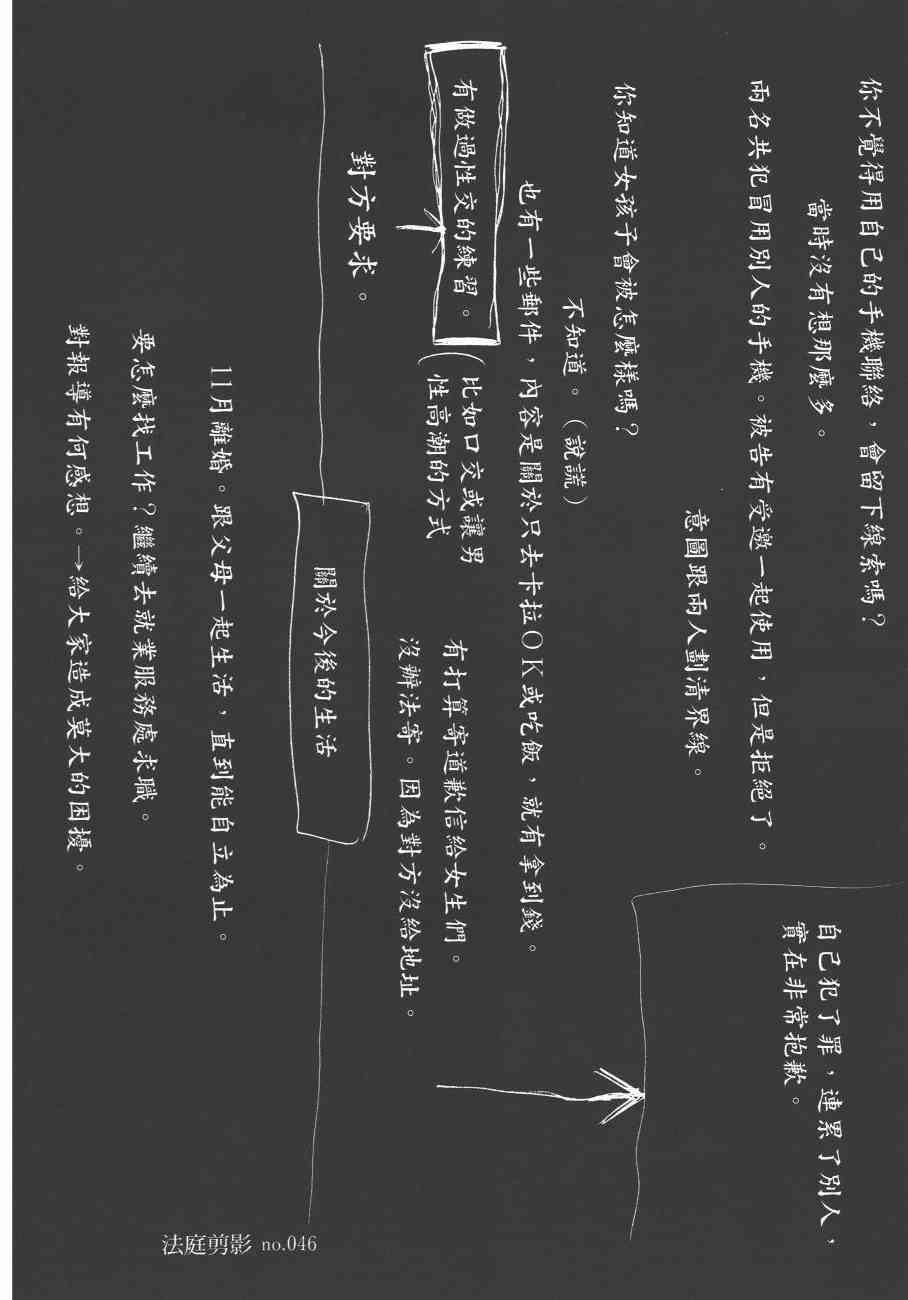 你不覺得用自己的手機聯絡，會留下線索嗎？
當時沒有想那麼多。
兩名共犯冒用別人的手機。被告有受邀一起使用，但是拒絕了。
意圖跟兩人劃清界線。
自己犯了罪，連累了別人，
實在非常抱歉。
你知道女孩子會被怎麼樣嗎？
不知道。（說謊）
也有一些郵件，內容是關於只去卡拉OK或吃飯，就有拿到錢。
有做過性交的練習。
（比如口交或讓男
性高潮的方式
對方要求。
有打算寄道歉信給女生們。
沒辦法寄。因為對方沒給地址。
關於今後的生活
11月離婚。跟父母一起生活，直到能自立為止。
要怎麼找工作？繼續去就業服務處求職。
對報導有何感想。→給大家造成莫大的困擾。
法庭剪影 no.046